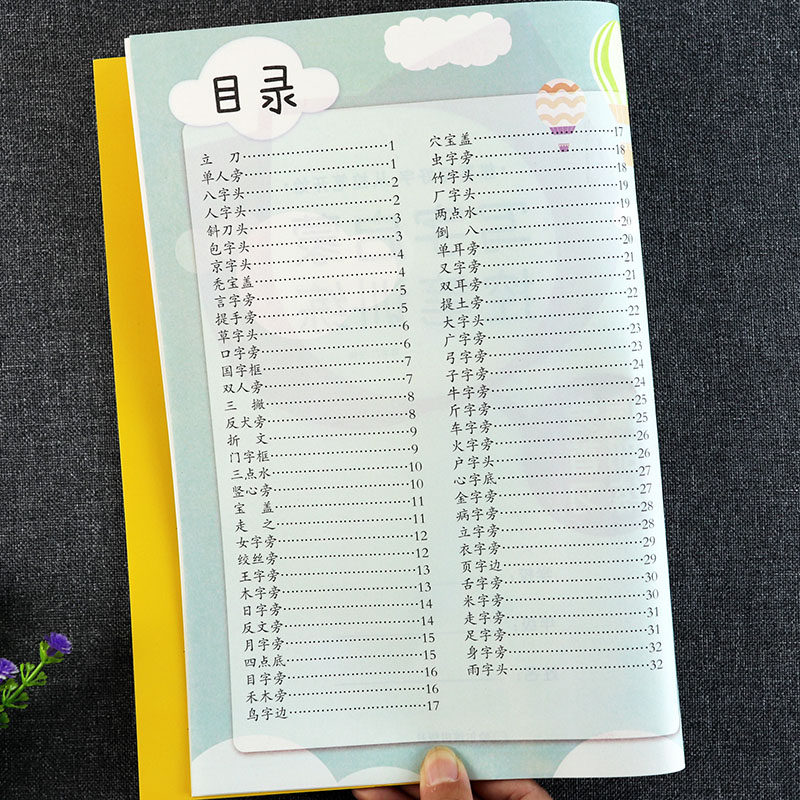 目录
立 刀……1
单人旁……1
八字头……2
人字头……2
斜刀头……3
包字头……3
京字头……4
秃宝盖……4
言字旁……5
提手旁……5
草字头……6
口字旁……6
国字框……7
双人旁……7
三 撇……8
反犬旁……8
折 文……9
门字框……9
三点水……10
竖心旁……10
宝 盖……11
走 之……11
女字旁……12
绞丝旁……12
王字旁……13
木字旁……13
日字旁……14
反文旁……14
月字旁……15
四点底……15
目字旁……16
禾木旁……16
鸟字边……17
穴宝盖……17
虫字旁……18
竹字头……18
厂字头……19
两点水……19
倒 八……20
单耳旁……20
又字旁……21
双耳旁……21
提土旁……22
大字头……22
广字旁……23
弓字旁……23
子字旁……24
牛字旁……24
斤字旁……25
车字旁……25
火字旁……26
户字头……26
心字底……27
金字旁……27
病字旁……28
立字旁……28
衣字旁……29
页字边……29
舌字旁……30
米字旁……30
走字旁……31
足字旁……31
身字旁……32
雨字头……32